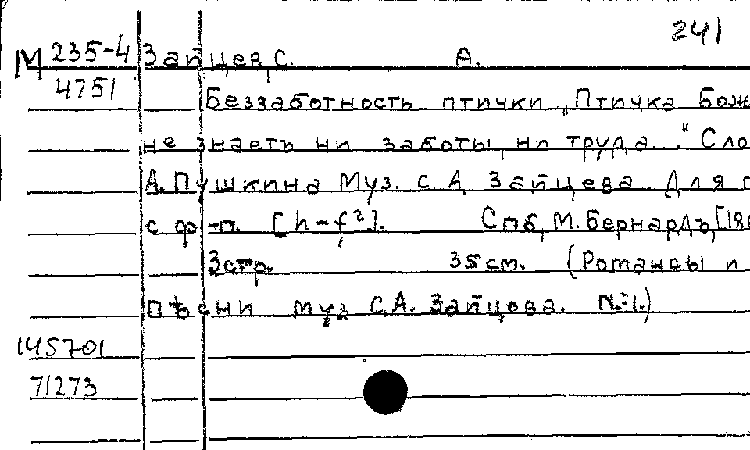 241
М 235-4 Зайцев, С. А.
4751
Беззаботность птички „Птичка Бож
не знаетъ ни заботы, ни труда." Сло
А. Пушкина Муз. С. А. Зайцева. Для г
с ф-п. [h-f²]. Спб, М. Бернардъ, [18
3 стр. 35 см. (Романсы и
пѣсни муз С.А. Зайцева. №1.)
145701
71273